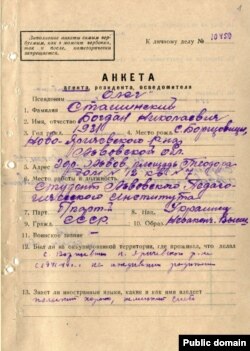 Заполнение анкеты самим вер-
буемым, как в момент вербовки,
так и после, категорически
запрещается.
К личному делу № 10480
АНКЕТА
агента, резидента, осведомителя
Псевдоним „Олег"
1. Фамилия Сташинский
2. Имя, отчество Богдан Николаевич
3. Год рожд. 1931 4. Место рожд. с. Борщовичи,
Ново-Яричевского р-на
Львовской обл.
5. Адрес гор. Львов, площадь Теодора
дом 12 кв. № 7
6. Место работы и должность
Студент Львовского Педаго-
гического Института
7. Парт. 8. Нац. Украинец
9. Гражд. СССР 10. Образ. Незакон. Высш.
11. Воинское звание –
12. Был ли на оккупированной территории, где проживал, что делал
с. Борщовичи
13. Знает ли иностранные языки, какие и как ими владеет
Public domain